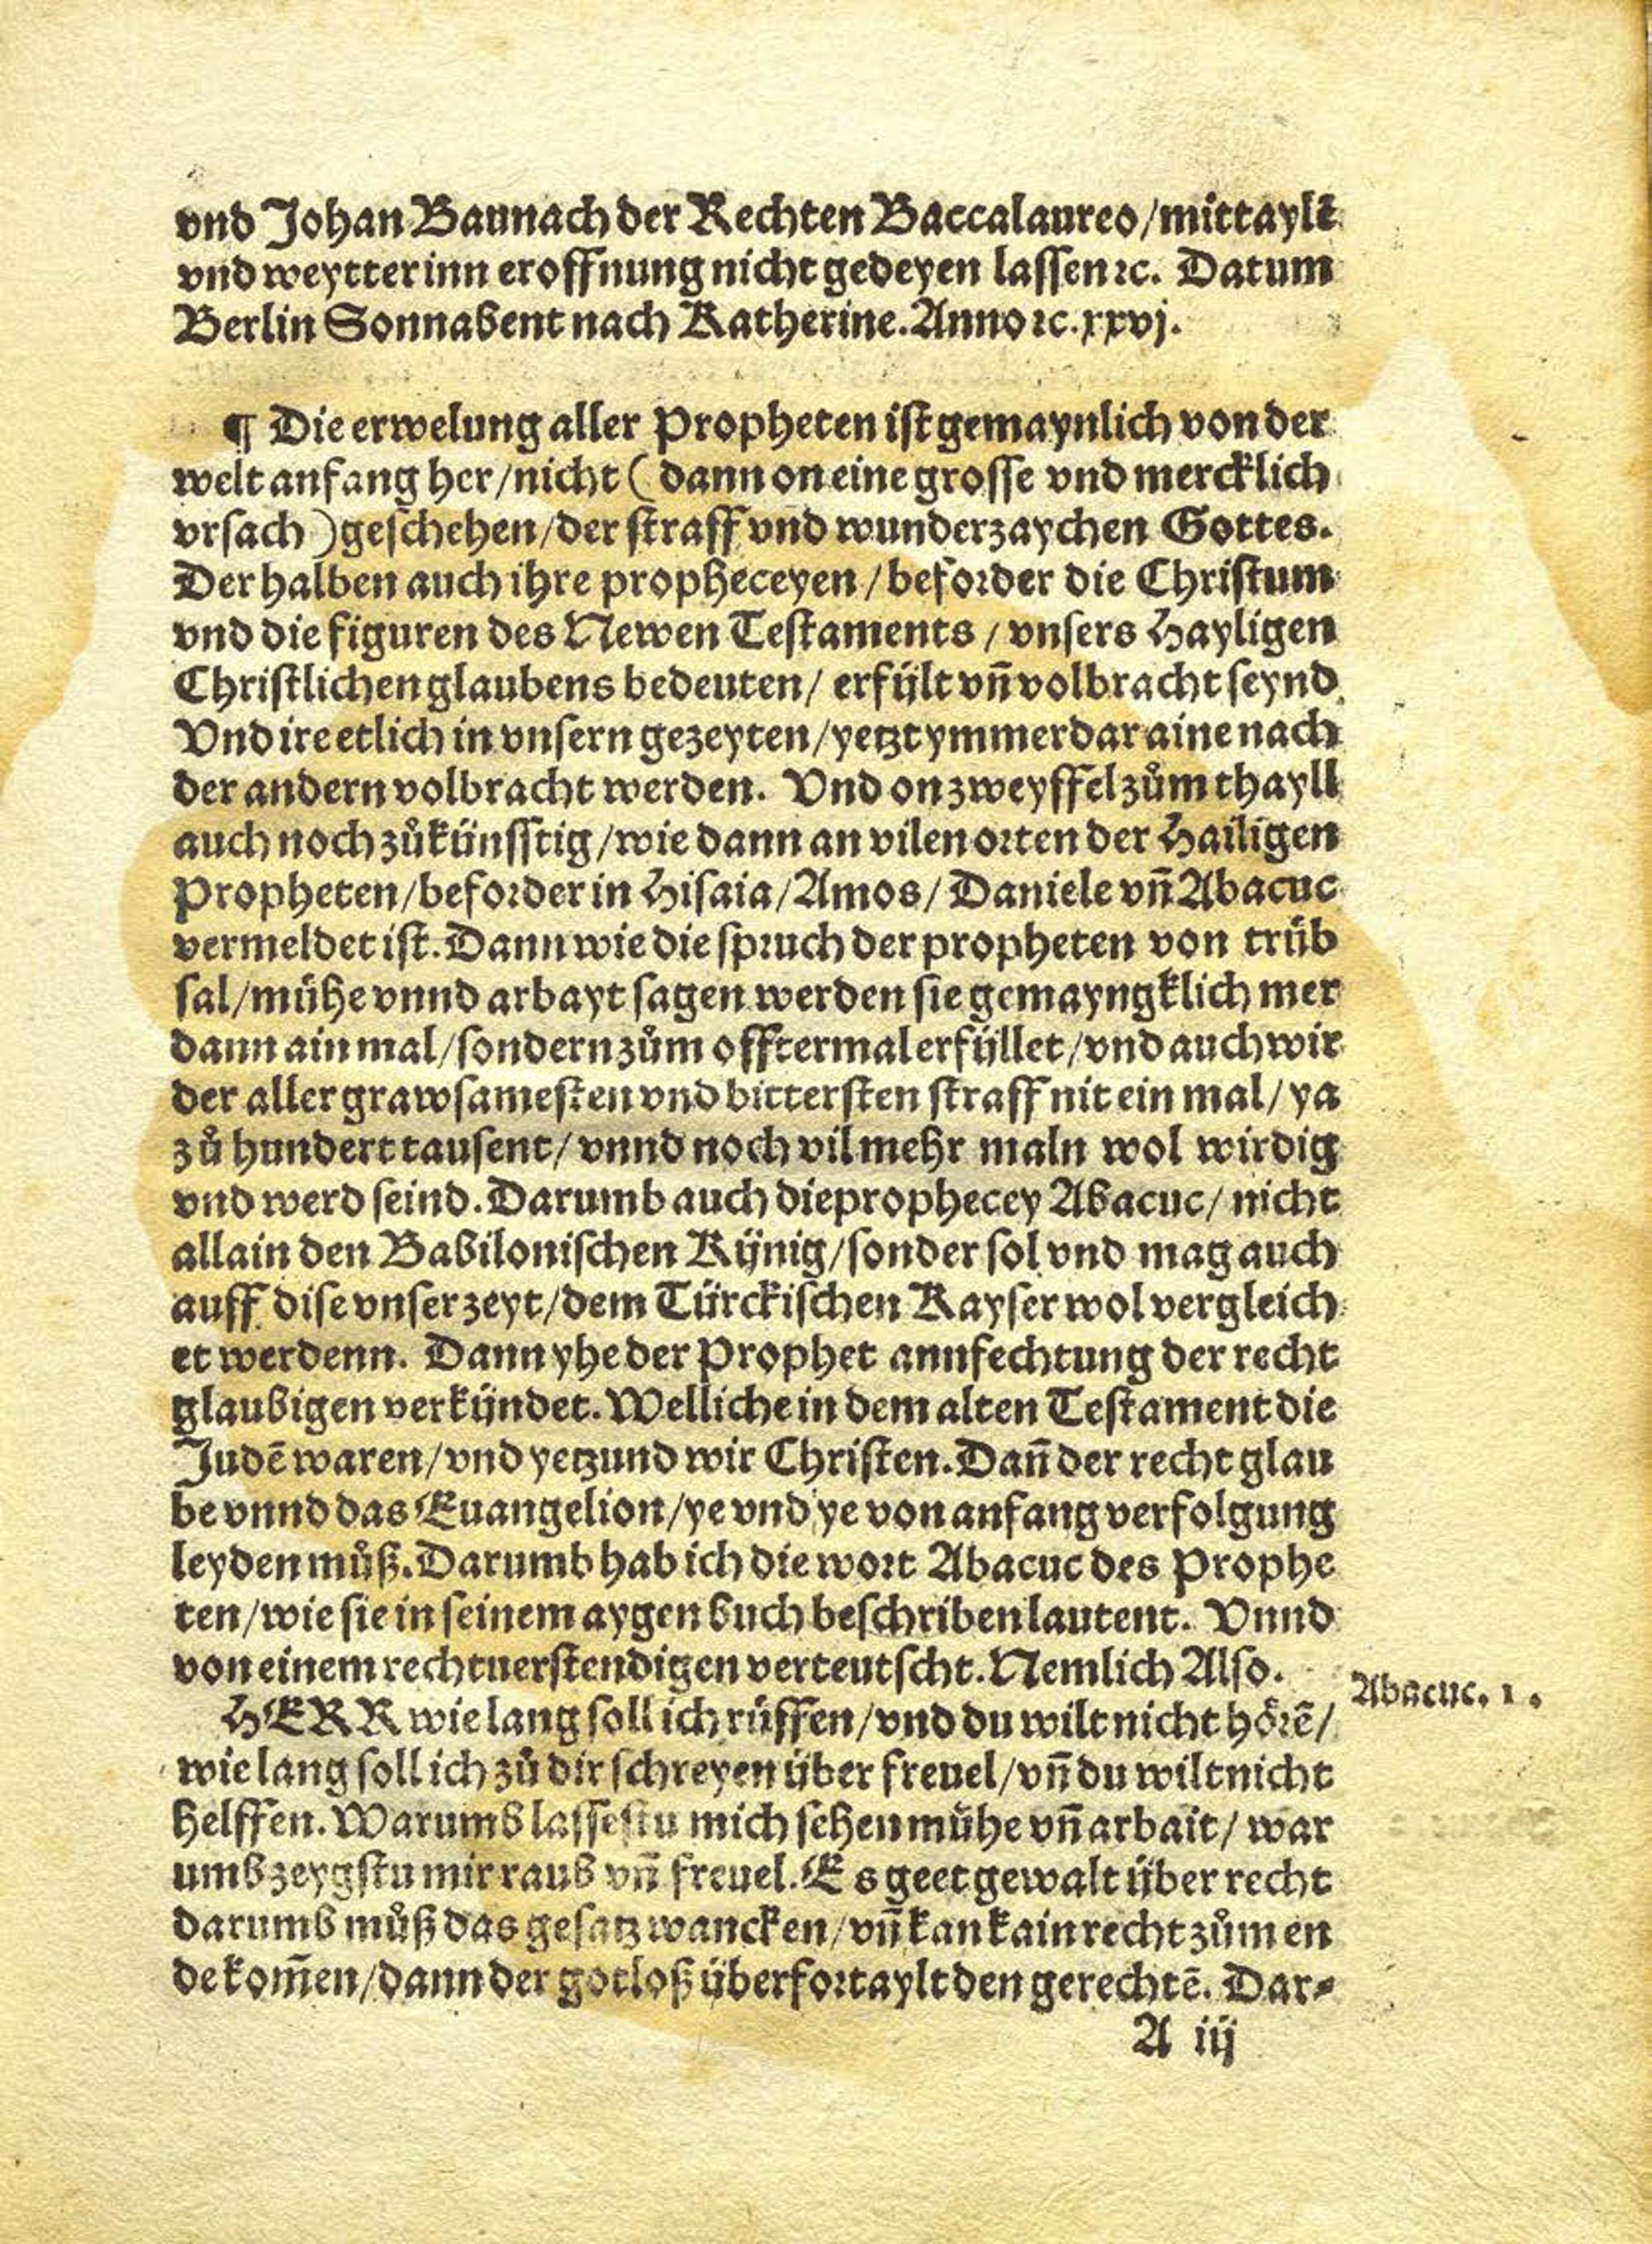 vnd Johan Baunach der Rechten Baccalaureo/mittaylē
vnd weytter inn eroffnung nicht gedeyen lassen ꝛc. Datum
Berlin Sonnabent nach Katherine. Anno ꝛc. xxvj.
¶ Die erwelung aller Propheten ist gemaynlich von der
welt anfang her/nicht (dann on eine grosse vnd mercklich
vrsach) geschehen/der straff vnd wunderzaychen Gottes.
Der halben auch ihre propheceyen/beforder die Christum
vnd die figuren des Newen Testaments/vnsers Hayligen
Christlichen glaubens bedeuten/erfült vn̄ volbracht seynd.
Vnd ire etlich in vnsern gezeyten/yetzt ymmerdar aine nach
der andern volbracht werden. Vnd on zweyffel zům thayll
auch noch zůkünsstig/wie dann an vilen orten der Hailigen
Propheten/beforder in Hisaia/Amos/Daniele vn̄ Abacuc
vermeldet ist. Dann wie die spruch der propheten von trüb
sal/mühe vnnd arbayt sagen werden sie gemayngklich mer
dann ain mal/sondern zům offtermal erfüllet/vnd auch wir
der aller grawsamesten vnd bittersten straff nit ein mal/ya
zů hundert tausent/vnnd noch vil mehr maln wol wirdig
vnd werd seind. Darumb auch die prophecey Abacuc/nicht
allain den Babilonischen Künig/sonder sol vnd mag auch
auff dise vnser zeyt/dem Türckischen Kayser wol vergleich
et werdenn. Dann yhe der Prophet annfechtung der recht
glaubigen verkündet. Welliche in dem alten Testament die
Judē waren/vnd yetzund wir Christen. Dan̄ der recht glau
be vnnd das Euangelion/ye vnd ye von anfang verfolgung
leyden můß. Darumb hab ich die wort Abacuc des Prophe
ten/wie sie in seinem aygen buch beschriben lautent. Vnnd
von einem rechtuerstendigen verteutscht. Nemlich Also.
HERR wie lang soll ich rüffen/vnd du wilt nicht hörē/
wie lang soll ich zů dir schreyen über freuel/vn̄ du wilt nicht
helffen. Warumb lassestu mich sehen mühe vn̄ arbait/war
umb zeygstu mir raub vn̄ freuel. Es geet gewalt über recht
darumb můß das gesatz wancken/vn̄ kan kain recht zům en
de kom̄en/dann der gotloß überfortaylt den gerechtē. Dar⸗
A iij
Abacuc. 1.